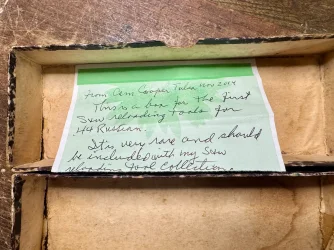 From Cam Cooper Tulsa Nov 2014
This is a box for the first
S&W reloading tools for
44 Russian.
It is very rare and should
be included with my S&W
reloading tool collection.